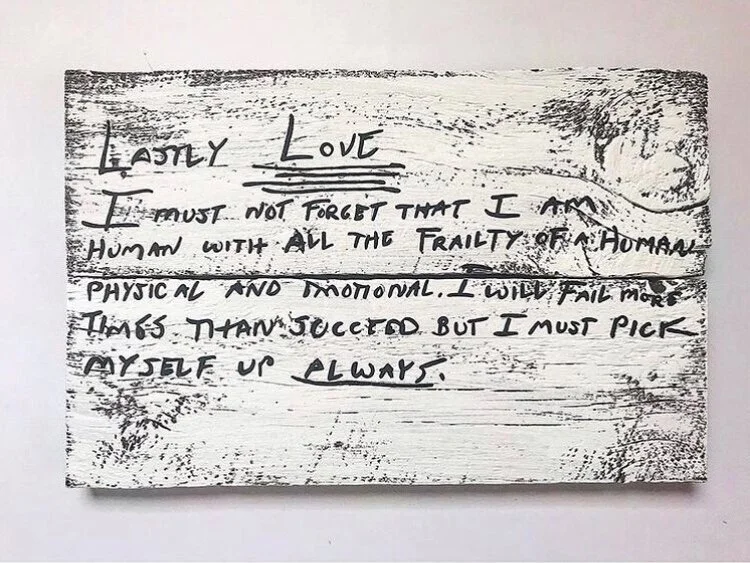 LASTLY LOVE
I MUST NOT FORGET THAT I AM
HUMAN WITH ALL THE FRAILTY OF A HUMAN
PHYSICAL AND EMOTIONAL. I WILL FAIL MORE
TIMES THAN SUCCEED BUT I MUST PICK
MYSELF UP ALWAYS.